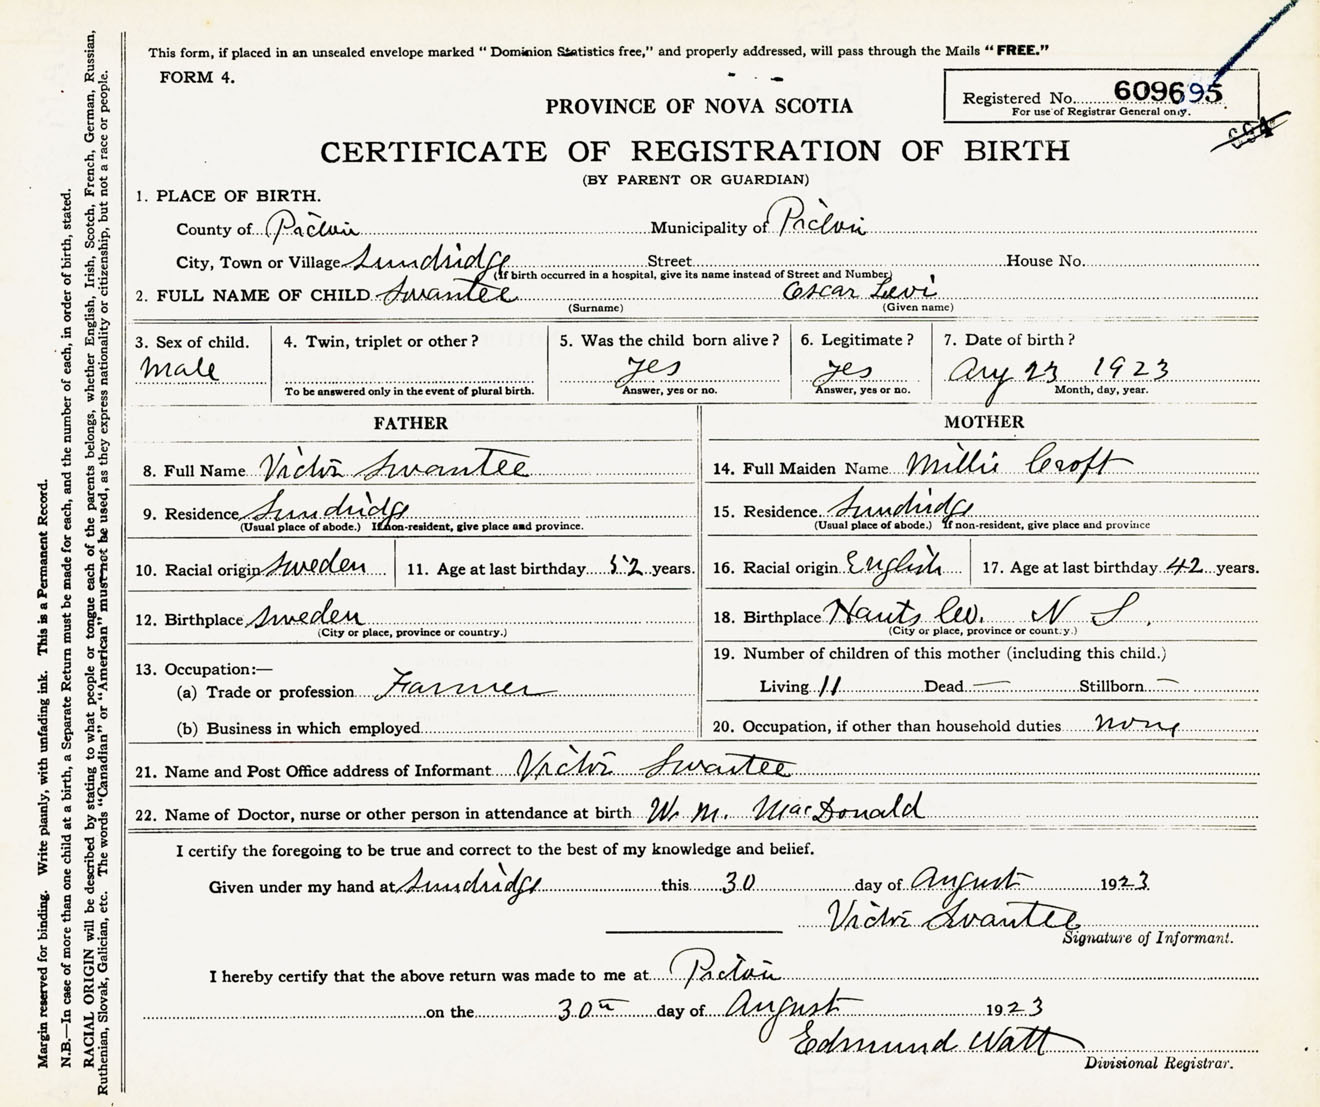 This form, if placed in an unsealed envelope marked "Dominion Statistics free," and properly addressed, will pass through the Mails "FREE."
FORM 4.
Registered No. 609695
For use of Registrar General only.
PROVINCE OF NOVA SCOTIA
CERTIFICATE OF REGISTRATION OF BIRTH
(BY PARENT OR GUARDIAN)
1. PLACE OF BIRTH.
County of Pictou Municipality of Pictou
City, Town or Village Sundridge Street House No.
(If birth occurred in a hospital, give its name instead of Street and Number)
2. FULL NAME OF CHILD Swantee Oscar Levi
(Surname) (Given name)
3. Sex of child. 4. Twin, triplet or other? 5. Was the child born alive? 6. Legitimate? 7. Date of birth?
Male yes yes Aug 23 1923
To be answered only in the event of plural birth. Answer, yes or no. Answer, yes or no. Month, day, year.
FATHER
8. Full Name Victor Swantee
9. Residence Sundridge
(Usual place of abode.) If non-resident, give place and province.
10. Racial origin Sweden 11. Age at last birthday 52 years.
12. Birthplace Sweden
(City or place, province or country.)
13. Occupation:—
(a) Trade or profession Farmer
(b) Business in which employed
MOTHER
14. Full Maiden Name Millie Croft
15. Residence. Sundridge
(Usual place of abode.) If non-resident, give place and province
16. Racial origin English 17. Age at last birthday 42 years.
18. Birthplace Hants Co. N S.
(City or place, province or country.)
19. Number of children of this mother (including this child.)
Living 11 Dead — Stillborn —
20. Occupation, if other than household duties none
21. Name and Post Office address of Informant Victor Swantee
22. Name of Doctor, nurse or other person in attendance at birth W. M. MacDonald
I certify the foregoing to be true and correct to the best of my knowledge and belief.
Given under my hand at Sundridge this 30 day of August 1923
Victor Swantee
Signature of Informant.
I hereby certify that the above return was made to me at Pictou
on the 30th day of August 1923
Edmund Watt
Divisional Registrar.
Margin reserved for binding. Write plainly, with unfading ink. This is a Permanent Record.
N.B.—In case of more than one child at a birth, a Separate Return must be made for each, and the number of each, in order of birth, stated.
RACIAL ORIGIN will be described by stating to what people or tongue each of the parents belongs, whether English, Irish, Scotch, French, German, Russian,
Ruthenian, Slovak, Galician, etc. The words "Canadian" or "American" must not be used, as they express nationality or citizenship, but not a race or people.